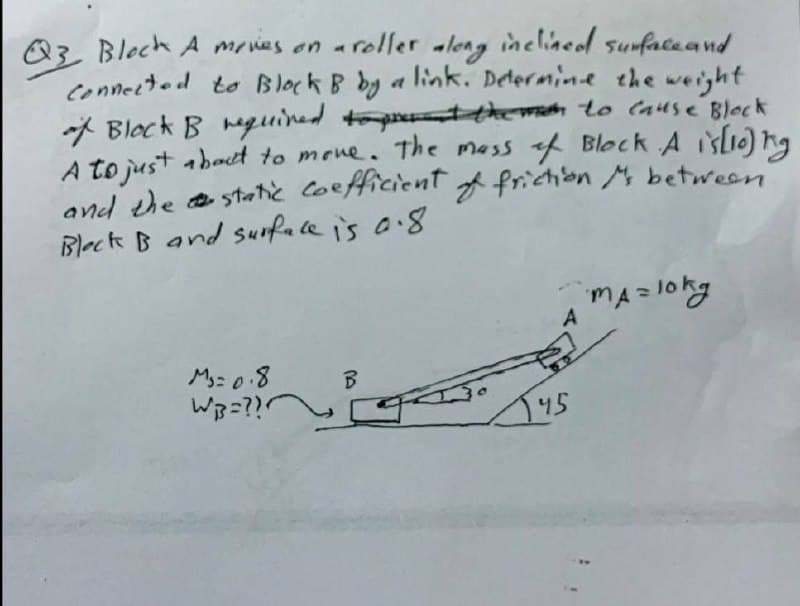 Q3 Block A moves on a roller along inclined surface and
Connected to Block B by a link. Determine the weight
of Block B required to prevent the man to cause Block
A to just about to move. The mass of Block A is (10) kg
and the static coefficient of friction Ms between
Block B and surface is 0.8
mA = 10 kg
A
Ms = 0.8
B
WB = ??
30
45